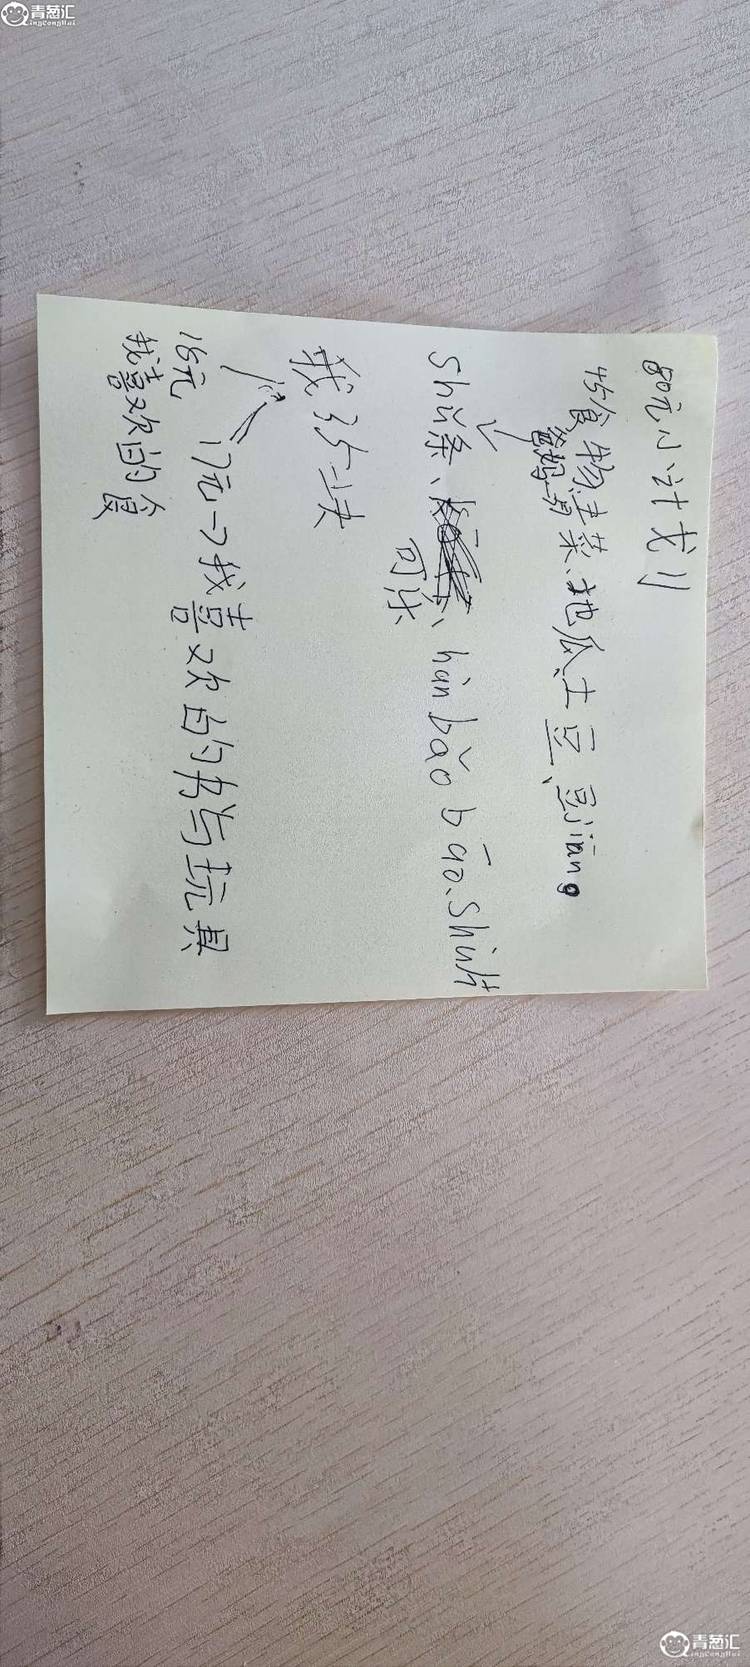 青葱汇
QingCongHui
80元小计划
45食物:主菜、地瓜、土豆、豆jiāng。
爸妈弟
shǔ条、可乐、hàn bǎo bāo、Shuǐ
我35块
17元→我喜欢的书与玩具
18元
我喜欢的食
青葱汇
QingCongHui